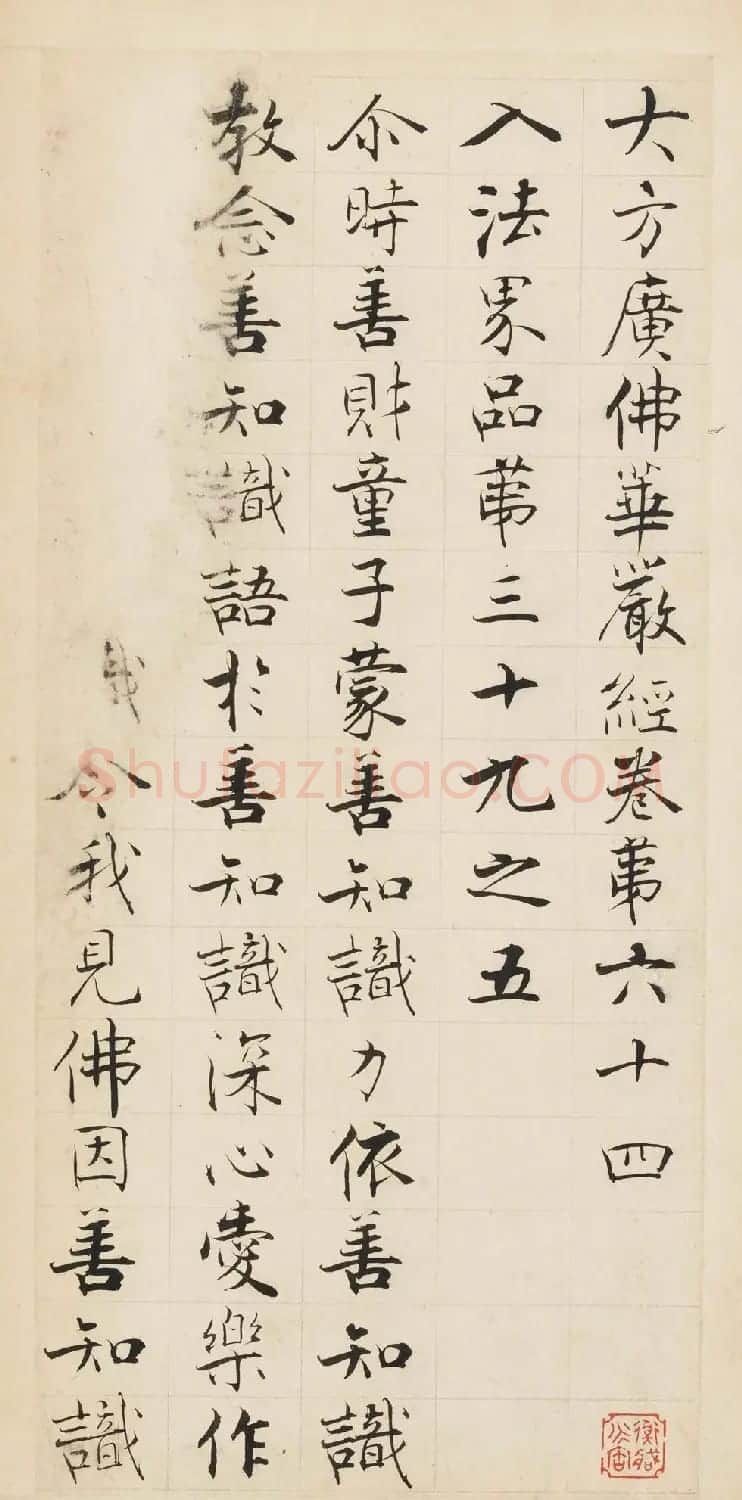 大方廣佛華嚴經卷苐六十四
入法界品苐三十九之五
尒時善財童子蒙善知識力依善知識
教念善知識語於善知識深心愛樂作
令我見佛因善知識
Shufaziliao.COM